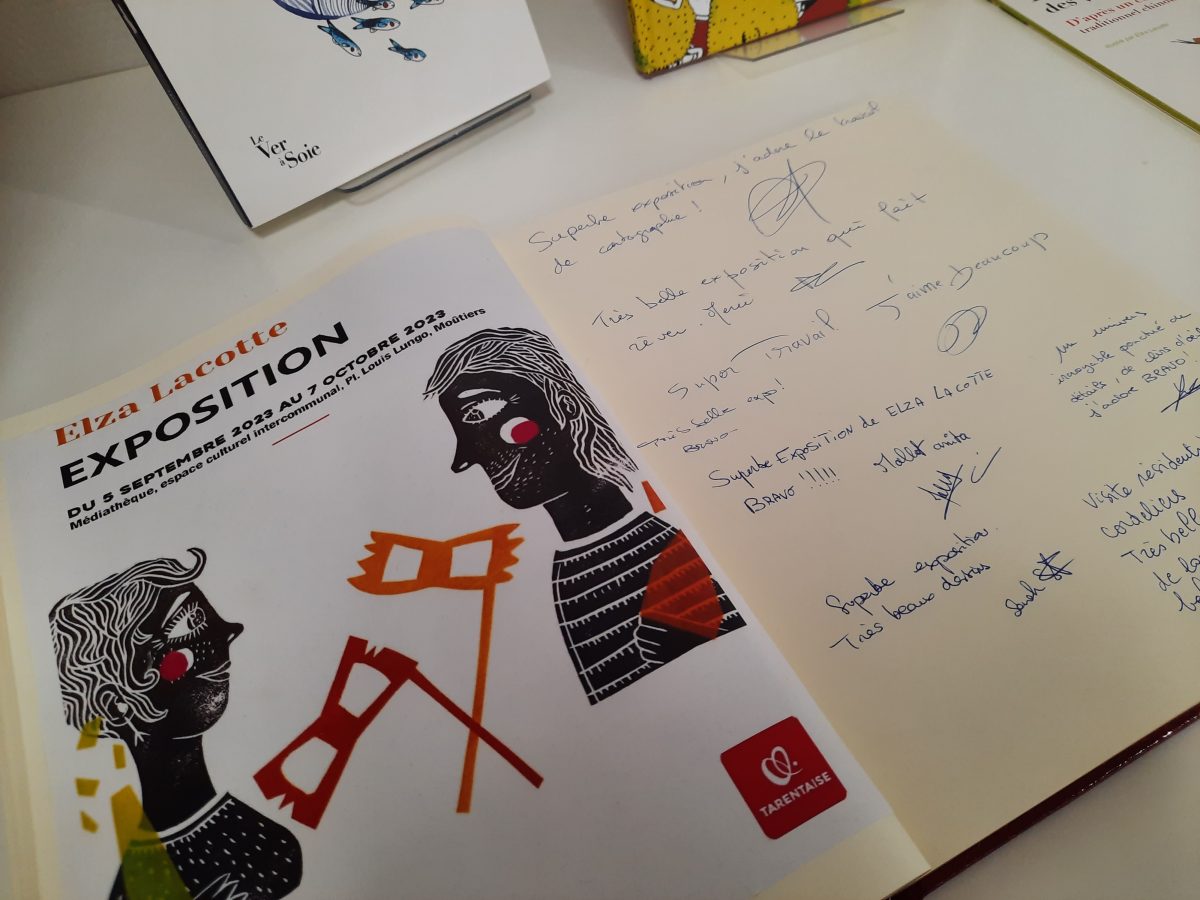 Le
Ver
à
Soie
D'après un
traditionnel chinois
Elza Lacotte
EXPOSITION
DU 5 SEPTEMBRE 2023 AU 7 OCTOBRE 2023
Médiathèque, espace culturel intercommunal, Pl. Louis Lungo, Moûtiers
TARENTAISE
Superbe exposition, j'adore le travail
de cartographie!
Très belle exposition qui fait
rêver. Merci
Super Travail
J'aime beaucoup
Très belle expo!
BRAVO
Superbe EXPOSITION de ELZA LACOTTE
BRAVO !!!!!
Mollet anita
Superbe exposition.
Très beaux dessins
Sarah
Un univers
incroyable ponctué de
détails, de clins d'œil
j'adore BRAVO!
Visite résident
Cordeliers
Très bell
de la